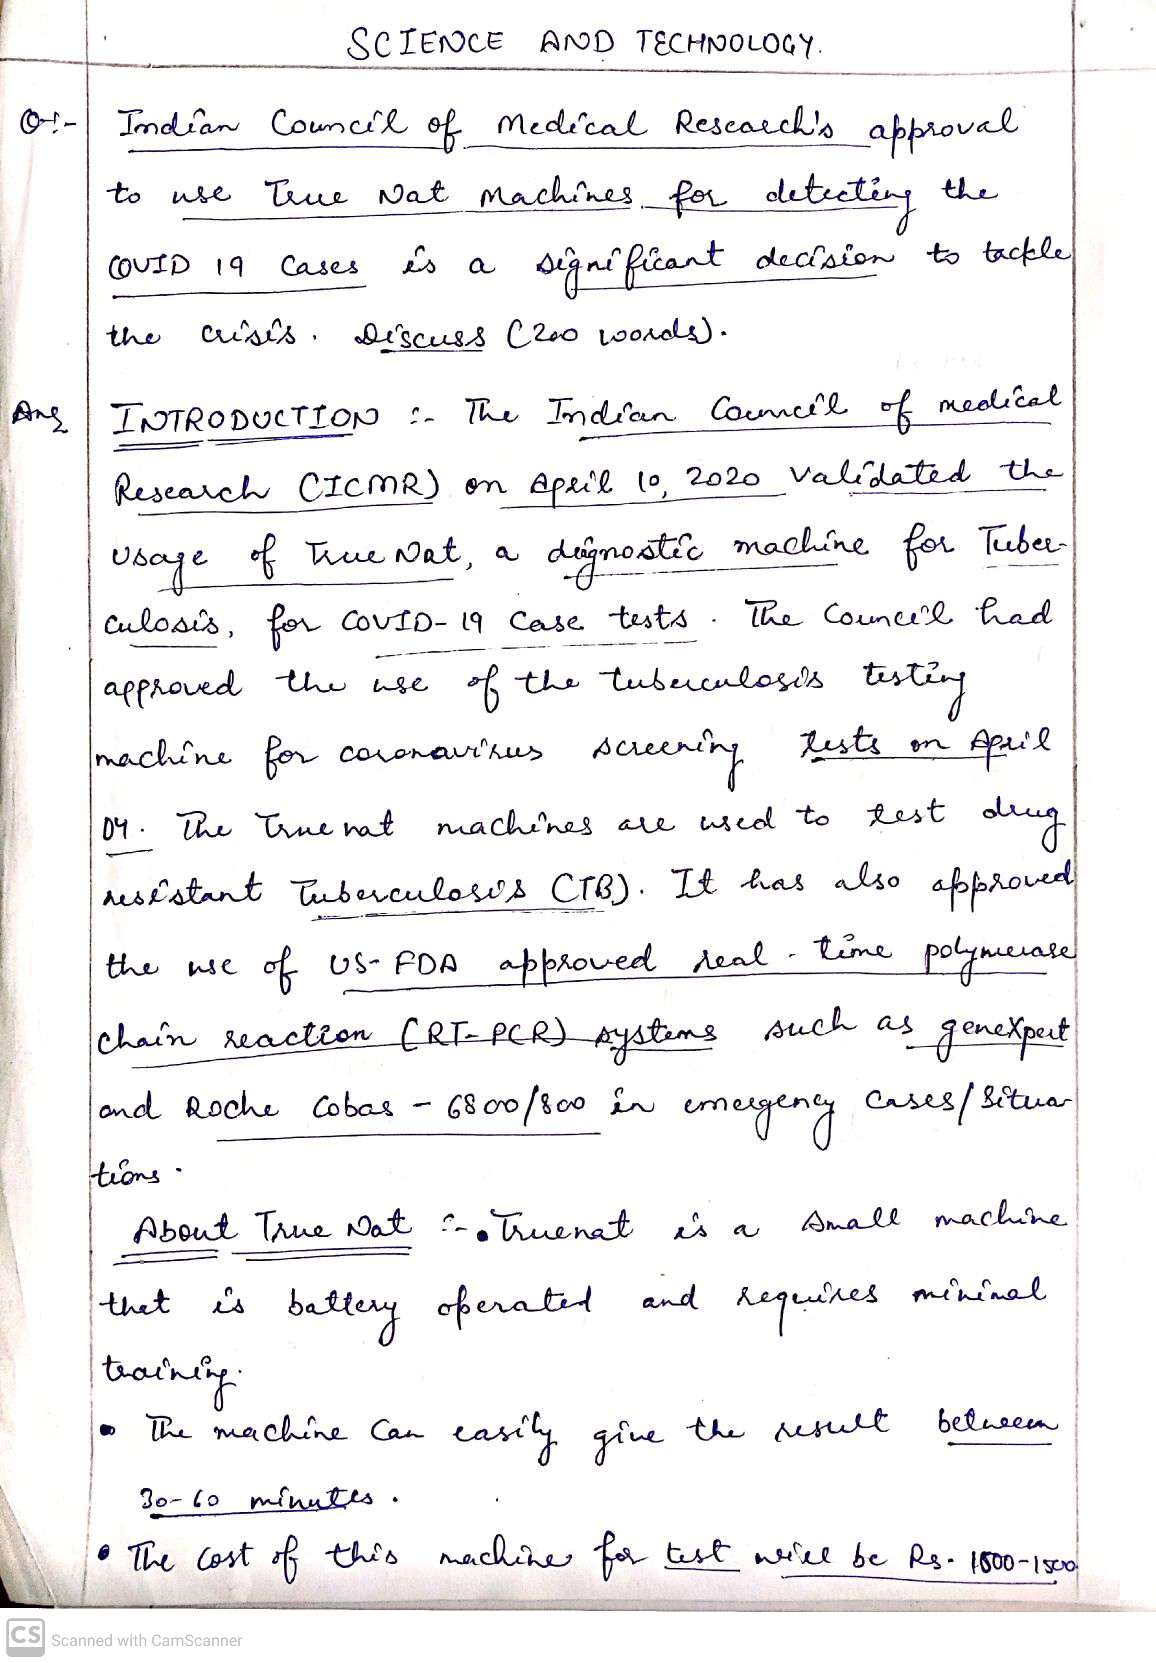 SCIENCE AND TECHNOLOGY.
Q:- Indian Council of Medical Research's approval
to use True Nat Machines for detecting the
COVID 19 Cases is a significant decision to tackle
the crisis. Discuss (200 words).
Ans INTRODUCTION :- The Indian Council of medical
Research (ICMR) on April 10, 2020 validated the
usage of True Nat, a diagnostic machine for Tuber-
culosis, for COVID-19 Case tests. The Council had
approved the use of the tuberculosis testing
machine for coronavirus screening tests on April
04. The True nat machines are used to test drug
resistant Tuberculosis (TB). It has also approved
the use of US-FDA approved real-time polymerase
chain reaction (RT-PCR) systems such as geneXpert
and Roche Cobas - 6800/800 in emergency cases/Situa-
tions.
About True Nat :- • Truenat is a small machine
that is battery operated and requires minimal
training.
• The machine can easily give the result between
30-60 minutes.
• The cost of this machine for test will be Rs.
CS Scanned with CamScanner